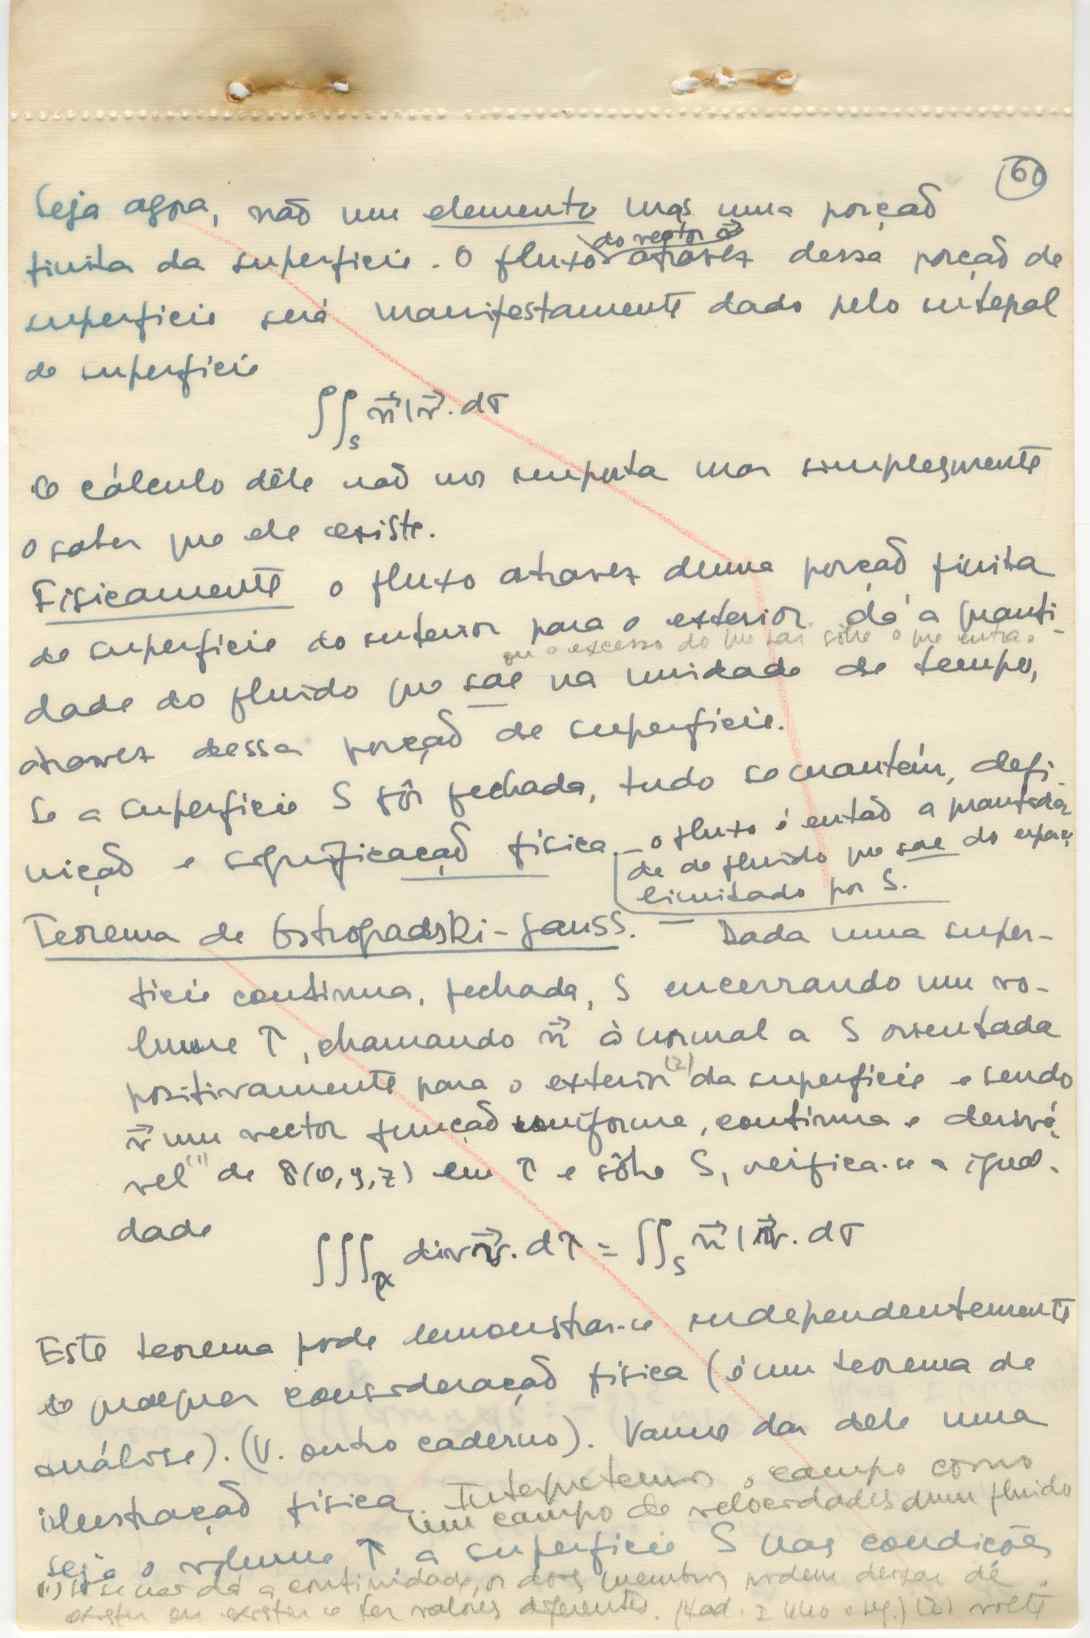 60
Seja agora, não um elemento mas uma porção
finita da superficie. O fluxo do vector v⃗ atravez dessa porção de
superficie será manifestamente dado pelo integral
de superficie
∫∫_S n⃗|v⃗. dσ
O cálculo dêle não nos importa mas simplesmente
o saber que ele existe.
Fisicamente o fluxo atravez duma porção finita
de superficie do interior para o exterior dá a quanti-
ou o excesso do que sai sôbre o que entra.
dade do fluido que sae na unidade de tempo,
atravez dessa porção de superficie.
Se a superficie S fôr fechada, tudo se mantém, defi-
nição e significação física – o fluxo é então a quantida-
de de fluido que sae do espaço
limitado por S.
Teorema de Ostrogradski-Gauss. — Dada uma super-
ficie continua, fechada, S encerrando um vo-
lume τ, chamando n⃗ à normal a S orientada
positivamente para o exterior (2) da superficie e sendo
v⃗ um vector função uniforme, continua e derivá-
vel (1) de P(x, y, z) em τ e sôbre S, verifica-se a igual-
dade
∫∫∫_τ div v⃗. dτ = ∫∫_S n⃗|v⃗. dσ
Este teorema pode demonstrar-se independentemente
de qualquer consideração física (é um teorema de
análise). (V. outro caderno). Vamos dar dele uma
ilustração física. Interpretemos o campo como
um campo de velocidades dum fluido
seja o volume τ, a superficie S nas condições
(1) se não dá a continuidade, os dois membros podem deixar de
existir ou existir e ter valores diferentes. (2) volte